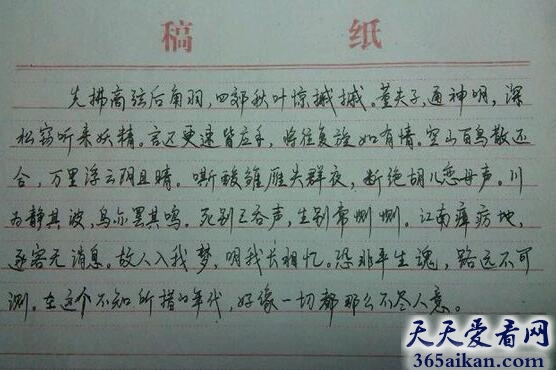 稿 纸
先拂商弦后角羽，四郊秋叶惊摵摵。董夫子，通神明，深
松窃听来妖精。言迟更速皆应手，将往复旋如有情。空山百鸟散还
合，万里浮云阴且晴。嘶酸雏雁失群夜，断绝胡儿恋母声。川
为静其波，鸟亦罢其鸣。死别已吞声，生别常恻恻。江南瘴疠地，
逐客无消息。故人入我梦，明我长相忆。恐非平生魂，路远不可
测。在这个不知所措的年代，好像一切都那么不尽人意。
天天爱看网
365aikan.com